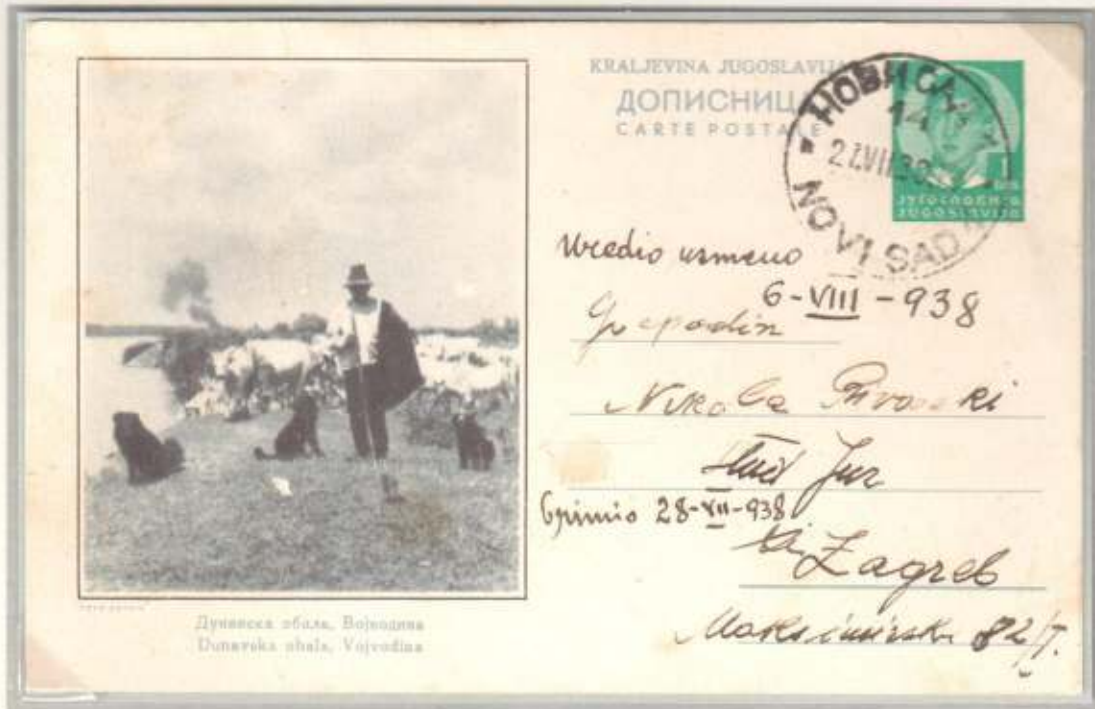 KRALJEVINA JUGOSLAVIJA
ДОПИСНИЦА
CARTE POSTALE
НОВИ САД
NOVI SAD
1
ЈУГОСЛАВИЈА
JUGOSLAVIJA
Uredio usmeno
6-VIII-938
Gospodin
Nikola
stud Jur
Primio 28-VII-938
Zagreb
Maksimirska 82/I.
Дунавска обала, Војводина
Dunavska obala, Vojvodina